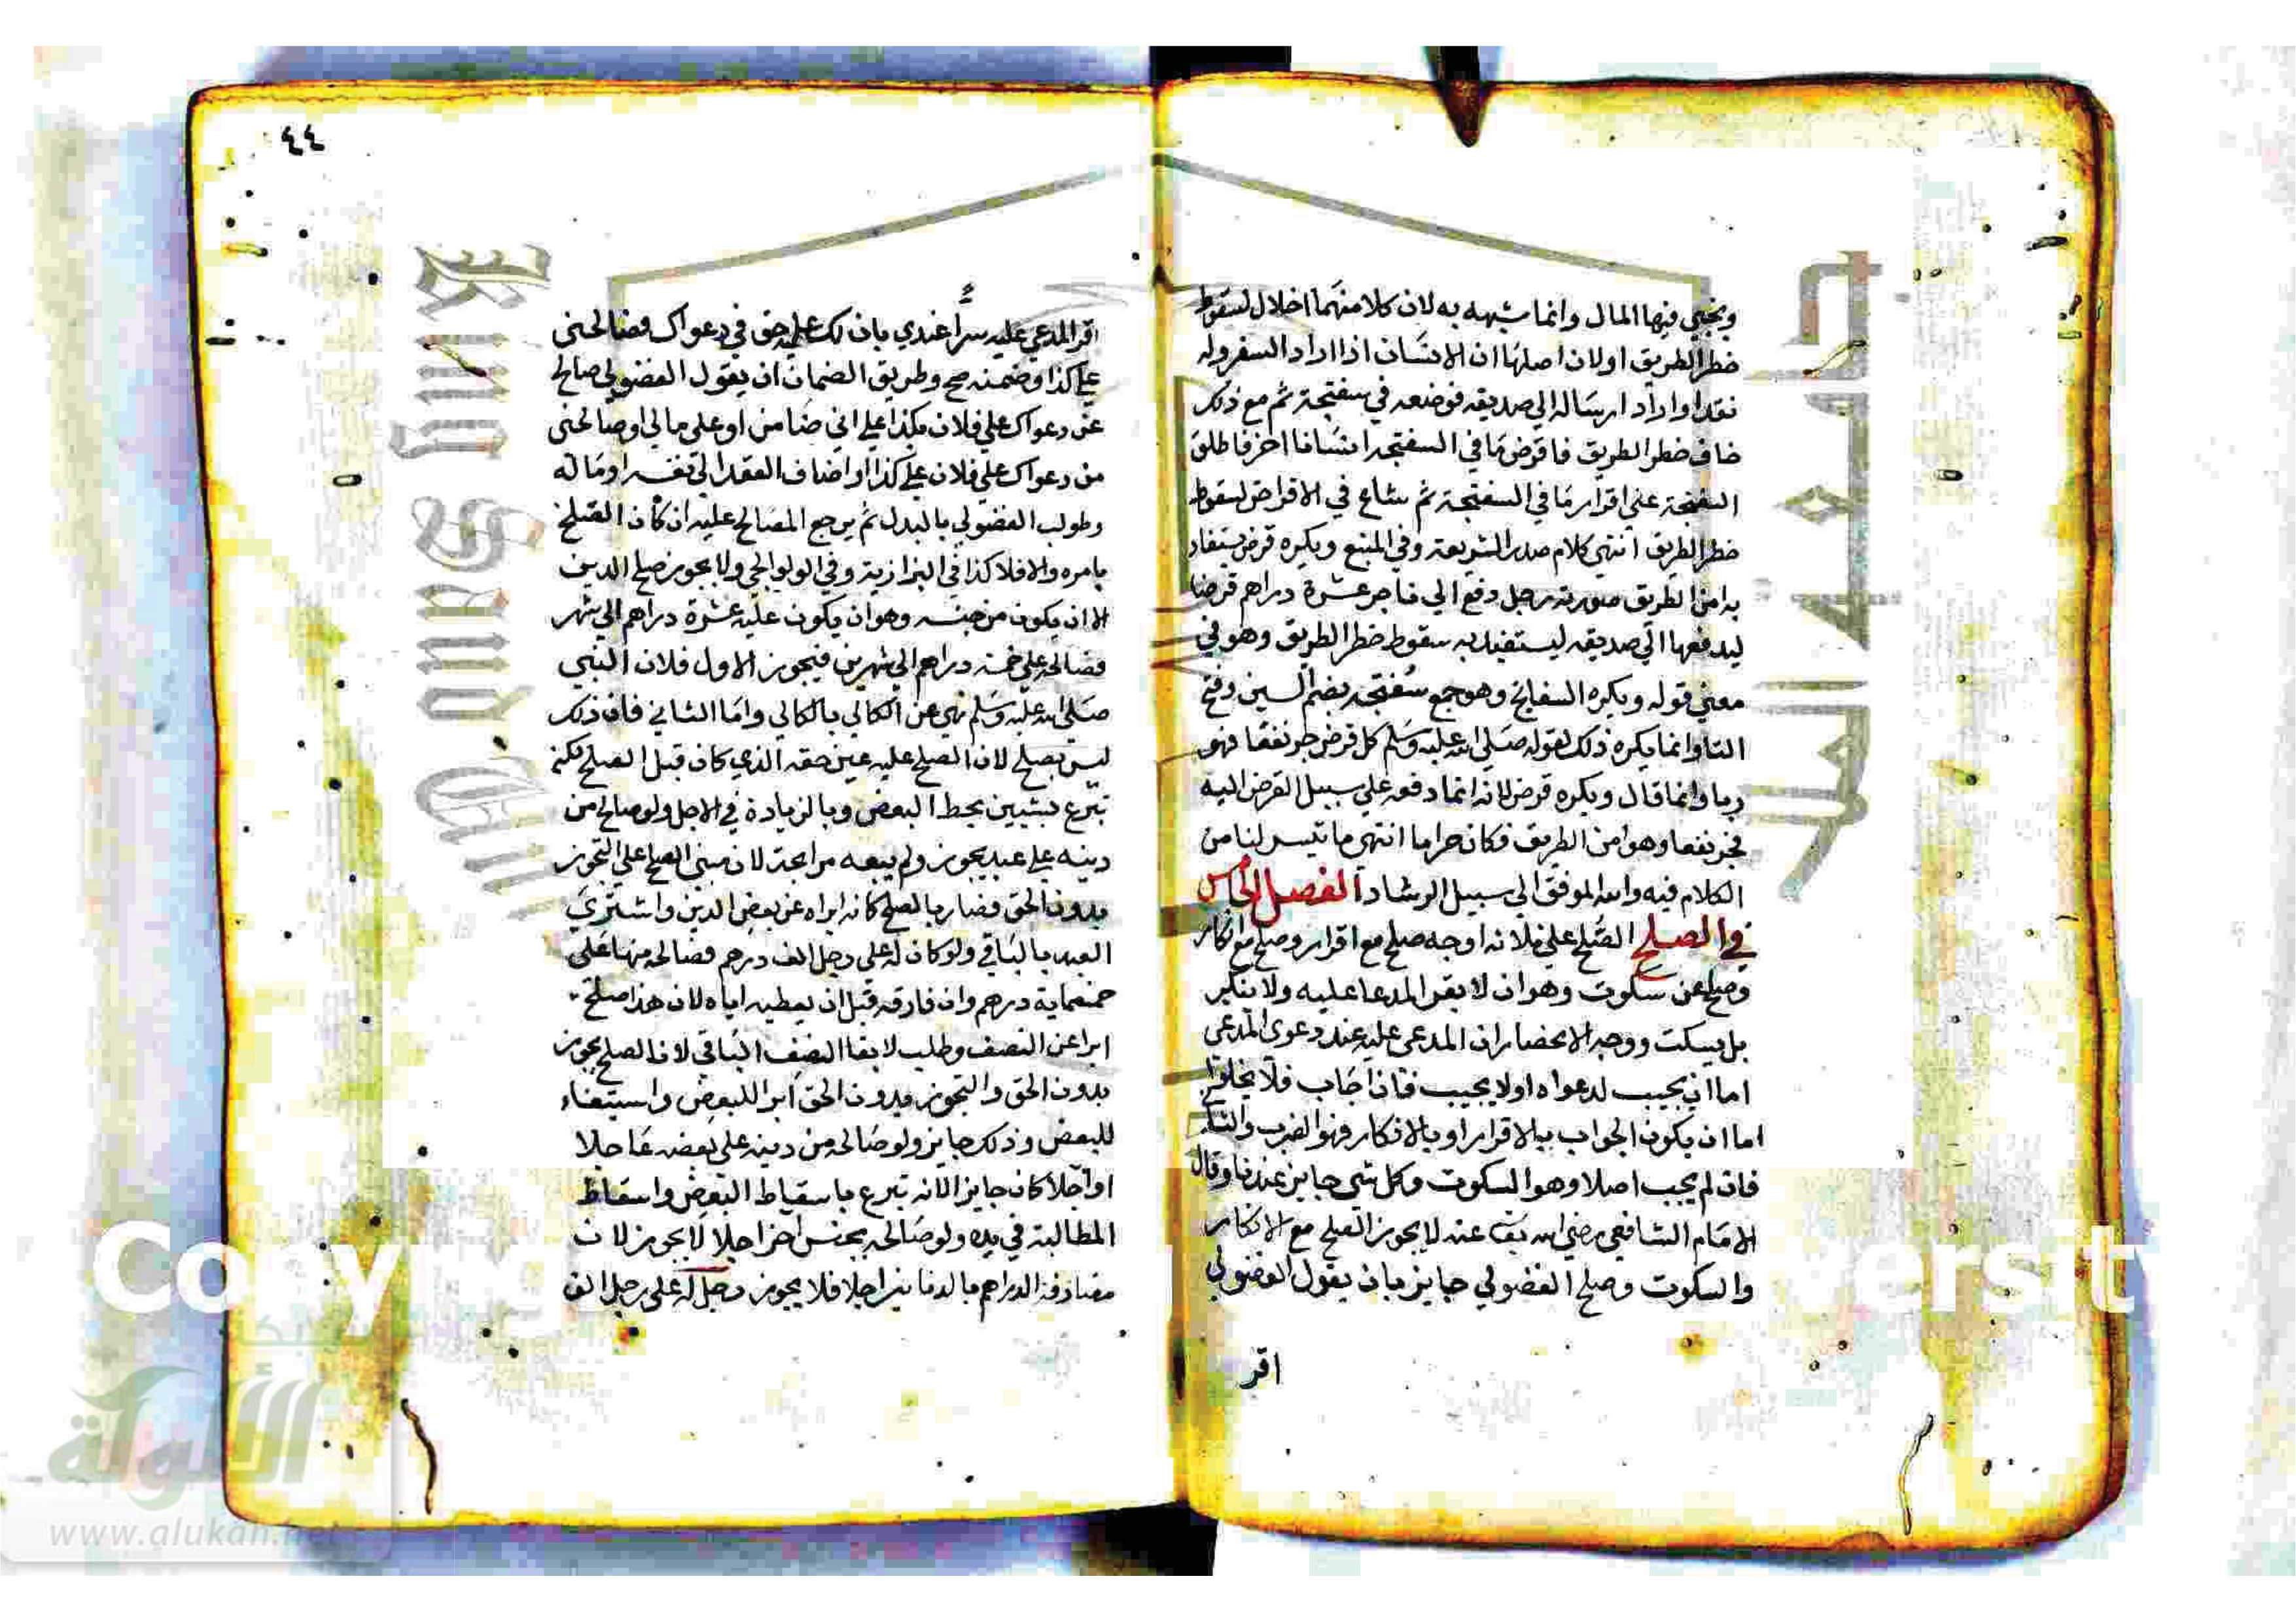 ويخبي فيها المال وانما شبهه به لان كلا منهما اخلال لسقوط
خطر الطريق اولان اصلها ان الانسان اذا اراد السفر وله
نقد او اراد ارساله الي صديقه فوضعه في سفتجة ثم مع ذلك
خاف خطر الطريق فاقرض ما في السفتجه انسانا اخر فاطلق
السفتجة علي اقرار ما في السفتجة ثم شاع في الاقراض لسقوط
خطر الطريق انتهي كلام صدر الشريعة وفي المنبع ويكره قرض يستفاد
به امن الطريق صورته رجل دفع الي تاجر عشرة دراهم قرضا
ليدفعها الي صديقه ليستفيد به سقوط خطر الطريق وهو في
معني قوله ويكره السفاتج وهو جمع سفتجه بضم السين وفتح
التا وانما يكره ذلك لقوله صلي الله عليه وسلم كل قرض جر نفعا فهو
ربا وانما قال ويكره قرض لانه انما دفعه علي سبيل القرض اليه
فجر نفعا وهو امن الطريق فكان حراما انتهي ما تيسر لنا من
الكلام فيه والله الموفق الي سبيل الرشاد الفصل الخامس
في الصلح الصلح علي ثلاثه اوجه صلح مع اقرار وصلح مع انكار
وصلح عن سكوت وهو ان لا يقر المدعا عليه ولا ينكر
بل يسكت ووجه الانحصار ان المدعي عليه عند دعوي المدعي
اما ان يجيب لدعواه اولا يجيب فان اجاب فلا يخلوا
اما ان يكون الجواب بالاقرار او بالانكار فهو الضرب والثا
فان لم يجب اصلا وهو السكوت وكل شي جايز عندنا وقال
الامام الشافعي رضي الله تعا عنه لا يجوز الصلح مع الانكار
والسكوت وصلح الفضولي جايز بان يقول الفضولي
اقر
٤٤
اقر المدعي عليه سرا عندي بان لك عليه حق في دعواك فصالحني
علي كذا وضمنه صح وطريق الضمان ان يقول الفضولي صالح
عن دعواك علي فلان بكذا علي اني ضامن او علي مالي او صالحني
من دعواك علي فلان علي كذا او اضاف العقد الي نفسه او ماله
وطولب الفضولي بالبدل ثم يرجع المصالح عليه ان كان الصلح
بامره والا فلا كذا في البزازية وفي الولوالجي ولا يجوز صلح الدين
الا ان يكون من جنسه وهو ان يكون عليه عشرة دراهم الي شهر
فصالحه علي خمسة دراهم الي شهرين فيجوز الاول فلان النبي
صلي الله عليه وسلم نهي عن الكالي بالكالي واما الثاني فان ذلك
ليس بصلح لان الصلح عليه عين حقه الذي كان قبل الصلح لكنه
تبرع بشيين بحط البعض وبالزيادة في الاجل ولو صالح من
دينه علي عبد يجوز ولم يبعه مرابحة لان مبني الصلح علي التجوز
بدون الحق فصار بالصلح كانه ابراه عن بعض الدين واشتري
العبد بالباقي ولو كان له علي رجل الف درهم فصالحه منها علي
خمسماية درهم وان فارقه قبل ان يعطيه اياه لان هذا صلح
ابرا عن النصف وطلب لايفا النصف الباقي لان الصلح يجوز
بدون الحق والتجوز بدون الحق ابرا للبعض واستيفاء
للبعض وذلك جايز ولو صالحه من دينه علي بعضه عاجلا
او اجلا كان جايزا لانه تبرع باسقاط البعض واسقاط
المطالبة في يده ولو صالحه بجنس اخر اجلا لا يجوز لان
مصارفة الدراهم بالدنانير اجلا فلا يجوز رجل له علي رجل الف